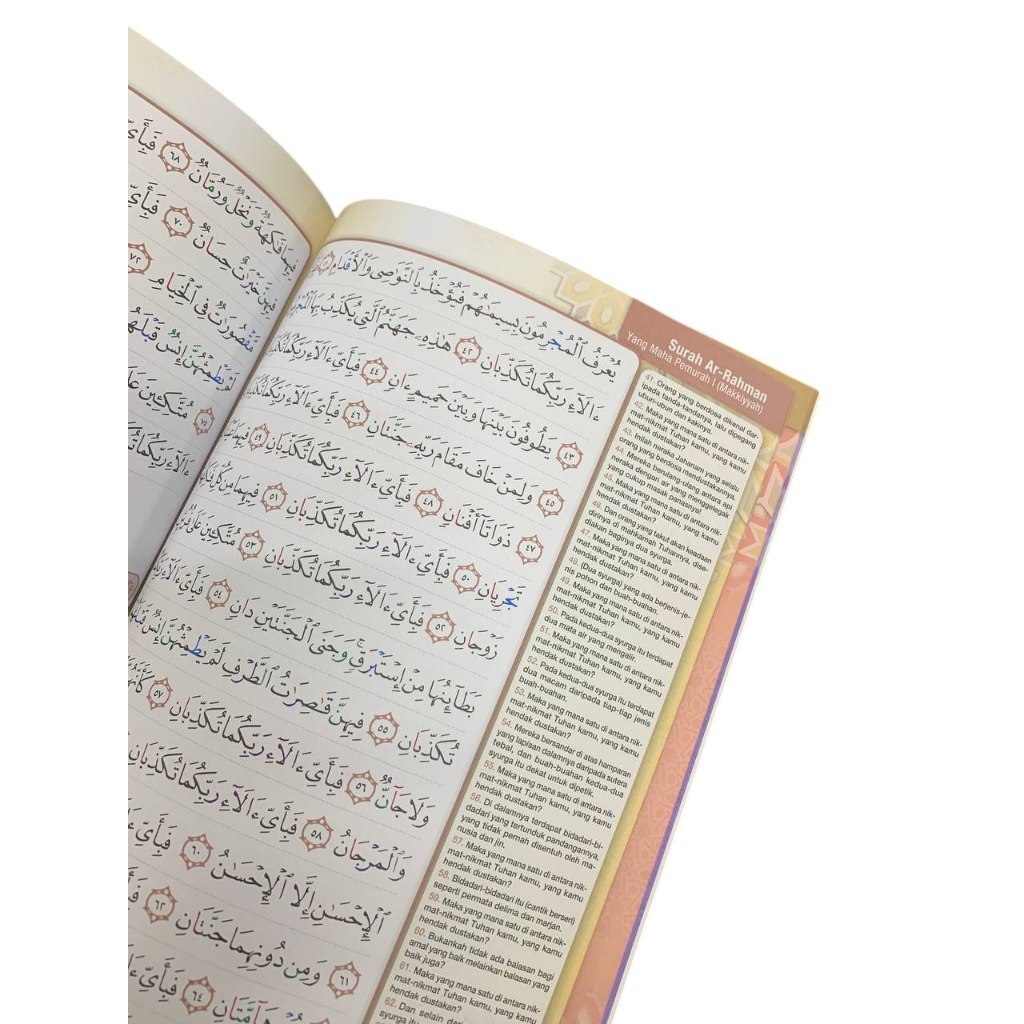 يُعْرَفُ ٱلْمُجْرِمُونَ بِسِيمَـٰهُمْ فَيُؤْخَذُ بِٱلنَّوَٰصِى وَٱلْأَقْدَامِ
ءَالَآءِ رَبِّكُمَا تُكَذِّبَانِ ٤٢ هَـٰذِهِۦ جَهَنَّمُ ٱلَّتِى يُكَذِّبُ بِهَا
٤٣ يَطُوفُونَ بَيْنَهَا وَبَيْنَ حَمِيمٍ ءَانٍ ٤٤ فَبِأَىِّ ءَالَآءِ رَبِّكُمَا
٤٥ وَلِمَنْ خَافَ مَقَامَ رَبِّهِۦ جَنَّتَانِ ٤٦ فَبِأَىِّ ءَالَآءِ
٤٧ ذَوَاتَآ أَفْنَانٍ ٤٨ فَبِأَىِّ ءَالَآءِ رَبِّكُمَا تُكَذِّبَانِ ٤٩ فِيهِمَا
تَجْرِيَانِ ٥٠ فَبِأَىِّ ءَالَآءِ رَبِّكُمَا تُكَذِّبَانِ ٥١ فِيهِمَا مِن كُلِّ
زَوْجَانِ ٥٢ فَبِأَىِّ ءَالَآءِ رَبِّكُمَا تُكَذِّبَانِ ٥٣ مُتَّكِـِٔينَ عَلَىٰ
بَطَآئِنُهَا مِنْ إِسْتَبْرَقٍ ۚ وَجَنَى ٱلْجَنَّتَيْنِ دَانٍ ٥٤ فَبِأَىِّ ءَالَآءِ
تُكَذِّبَانِ ٥٥ فِيهِنَّ قَـٰصِرَٰتُ ٱلطَّرْفِ لَمْ يَطْمِثْهُنَّ إِنسٌ
وَلَا جَآنٌّ ٥٦ فَبِأَىِّ ءَالَآءِ رَبِّكُمَا تُكَذِّبَانِ ٥٧
وَٱلْمَرْجَانُ ٥٨ فَبِأَىِّ ءَالَآءِ رَبِّكُمَا تُكَذِّبَانِ
ٱلْإِحْسَـٰنِ إِلَّا ٱلْإِحْسَـٰنُ ٦٠ فَبِأَىِّ
٦١ وَمِن دُونِهِمَا جَنَّتَانِ ٦٢
٦٤ فَبِأَىِّ
Surah Ar-Rahman
Yang Maha Pemurah | (Makkiyyah)
41. Orang yang berdosa dikenal dar-
ipada tanda-tandanya, lalu dipegang
ubun-ubun dan kakinya.
42. Maka yang mana satu di antara nik-
mat-nikmat Tuhan kamu, yang kamu
hendak dustakan?
43. Inilah neraka Jahanam yang selalu
orang yang berdosa mendustakannya.
44. Mereka berulang-ulang antara api
neraka dengan air yang menggelegak
yang cukup masak panasnya!
45. Maka yang mana satu di antara nik-
mat-nikmat Tuhan kamu, yang kamu
hendak dustakan?
46. Dan orang yang takut akan keadaan
dirinya di mahkamah Tuhannya, dise-
diakan baginya dua syurga,
47. Maka yang mana satu di antara nik-
mat-nikmat Tuhan kamu, yang kamu
hendak dustakan?
48. (Dua syurga) yang ada berjenis-je-
nis pohon dan buah-buahan.
49. Maka yang mana satu di antara nik-
mat-nikmat Tuhan kamu, yang kamu
hendak dustakan?
50. Pada kedua-dua syurga itu terdapat
dua mata air yang mengalir.
51. Maka yang mana satu di antara nik-
mat-nikmat Tuhan kamu, yang kamu
hendak dustakan?
52. Pada kedua-dua syurga itu terdapat
dua macam daripada tiap-tiap jenis
buah-buahan.
53. Maka yang mana satu di antara nik-
mat-nikmat Tuhan kamu, yang kamu
hendak dustakan?
54. Mereka bersandar di atas hamparan
yang lapisan dalamnya daripada sutera
tebal, dan buah-buahan kedua-dua
syurga itu dekat untuk dipetik.
55. Maka yang mana satu di antara nik-
mat-nikmat Tuhan kamu, yang kamu
hendak dustakan?
56. Di dalamnya terdapat bidadari-bi-
dadari yang tertunduk pandangannya,
yang tidak pernah disentuh oleh ma-
nusia dan jin.
57. Maka yang mana satu di antara nik-
mat-nikmat Tuhan kamu, yang kamu
hendak dustakan?
58. Bidadari-bidadari itu (cantik berseri)
seperti permata delima dan marjan.
59. Maka yang mana satu di antara nik-
mat-nikmat Tuhan kamu, yang kamu
hendak dustakan?
60. Bukankah tidak ada balasan bagi
amal yang baik melainkan balasan yang
baik juga?
61. Maka yang mana satu di antara nik-
mat-nikmat Tuhan kamu, yang kamu
hendak dustakan?
62. Dan selain
syurga
فِيهِمَا فَـٰكِهَةٌ وَنَخْلٌ وَرُمَّانٌ ٦٨
فِيهِنَّ خَيْرَٰتٌ حِسَانٌ ٧٠
مَّقْصُورَٰتٌ فِى ٱلْخِيَامِ ٧٢
لَمْ يَطْمِثْهُنَّ إِنسٌ قَبْلَهُمْ
٧٥ مُتَّكِـِٔينَ
ءَالَآءِ رَبِّكُمَا